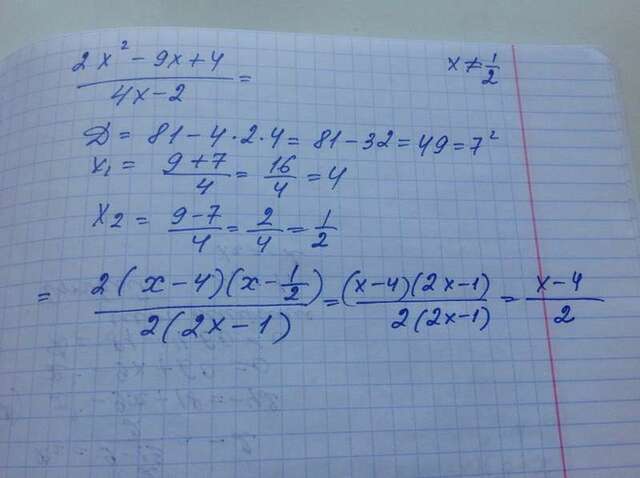 (2x² - 9x + 4)/(4x - 2) =    x ≠ 1/2
D = 81 - 4 · 2 · 4 = 81 - 32 = 49 = 7²
x₁ = (9 + 7)/4 = 16/4 = 4
x₂ = (9 - 7)/4 = 2/4 = 1/2
= 2(x - 4)(x - 1/2)/2(2x - 1) = (x - 4)(2x - 1)/2(2x - 1) = (x - 4)/2